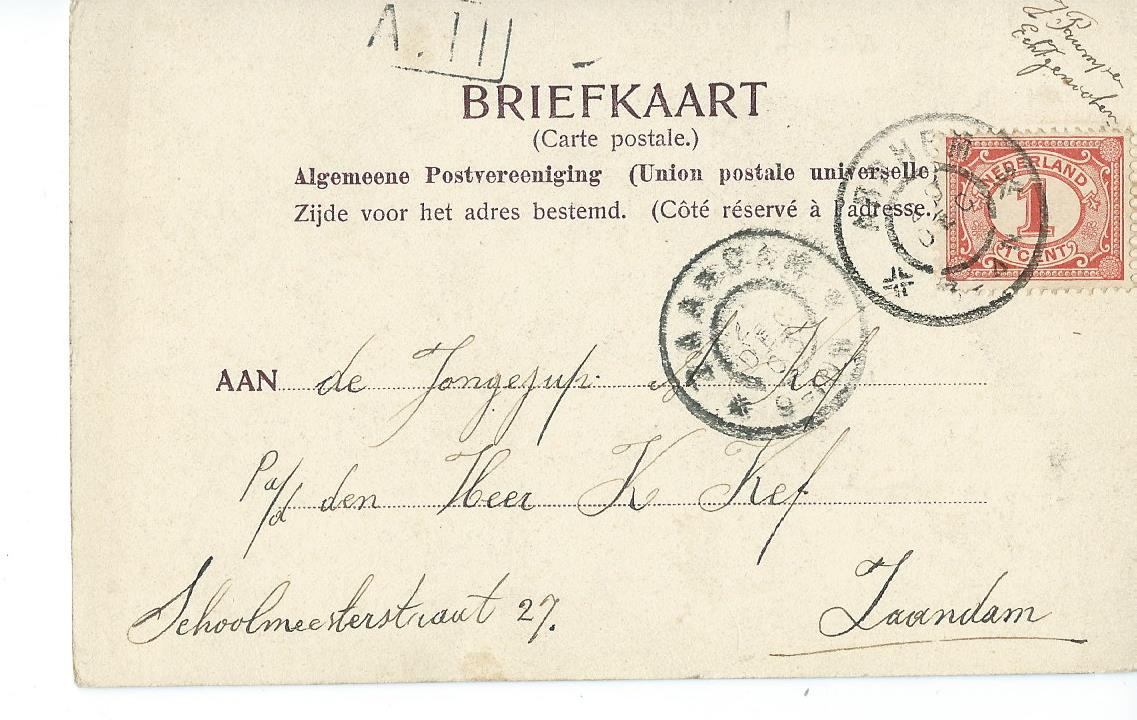 A. III
BRIEFKAART
(Carte postale.)
Algemeene Postvereeniging (Union postale universelle)
Zijde voor het adres bestemd. (Côté réservé à l'adresse.)
ARNHEM
NEDERLAND
1
CENT
ZAANDAM
AAN de Jongejuf. Kef
P a/d den Heer K Kef
Schoolmeesterstraat 27.
Zaandam